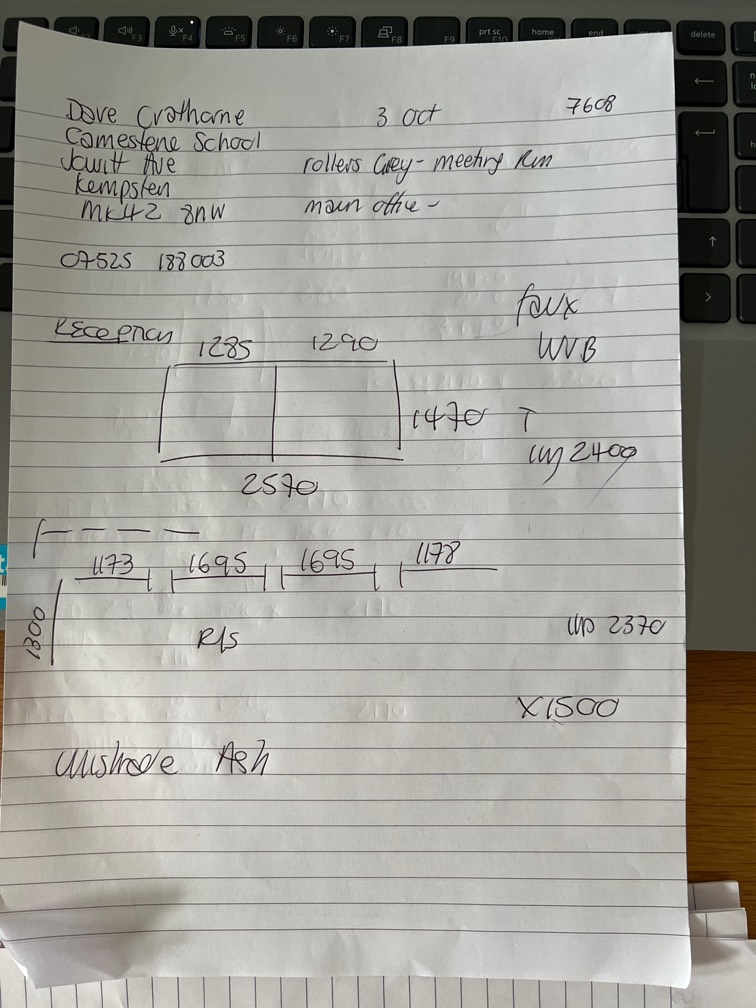 Dave Crathorne 3 Oct 7608
Camestene School
Jowitt Ave rollers Grey - meeting Rm
Kempsten main office -
MK42 8NW
07525 188003
Reception
faux
WVB
1285 1290
1470 T
2570
up 2400
1173 1695 1695 1178
1800
R/S up 2370
X1500
Unishade Ash
prt sc
home
end
delete
F3
F4
F5
F6
F7
F8
F9
F10